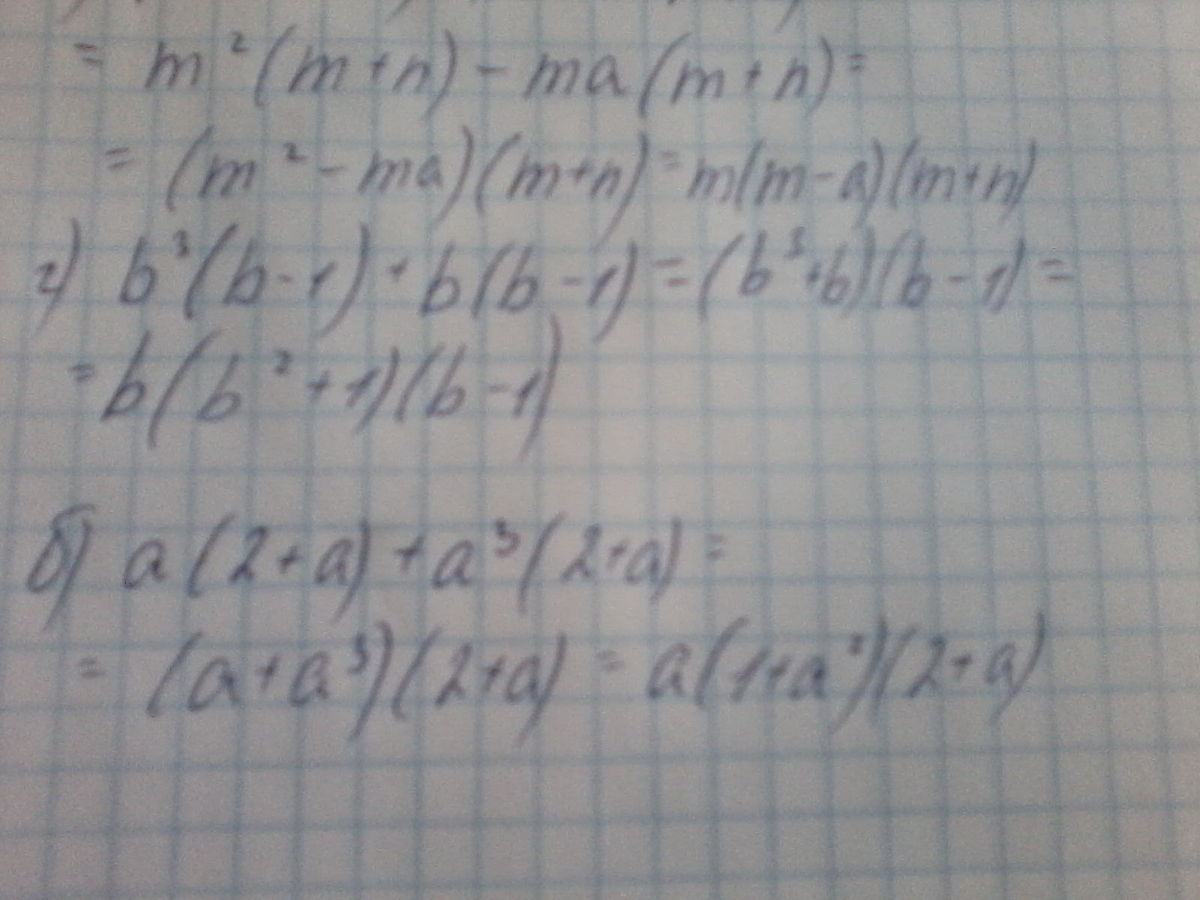 = m²(m+n) - ma(m+n) =
= (m² - ma)(m+n) = m(m-a)(m+n)
г) b³(b-1) + b(b-1) = (b³+b)(b-1) =
= b(b²+1)(b-1)
б) a(2+a) + a³(2+a) =
= (a+a³)(2+a) = a(1+a²)(2+a)